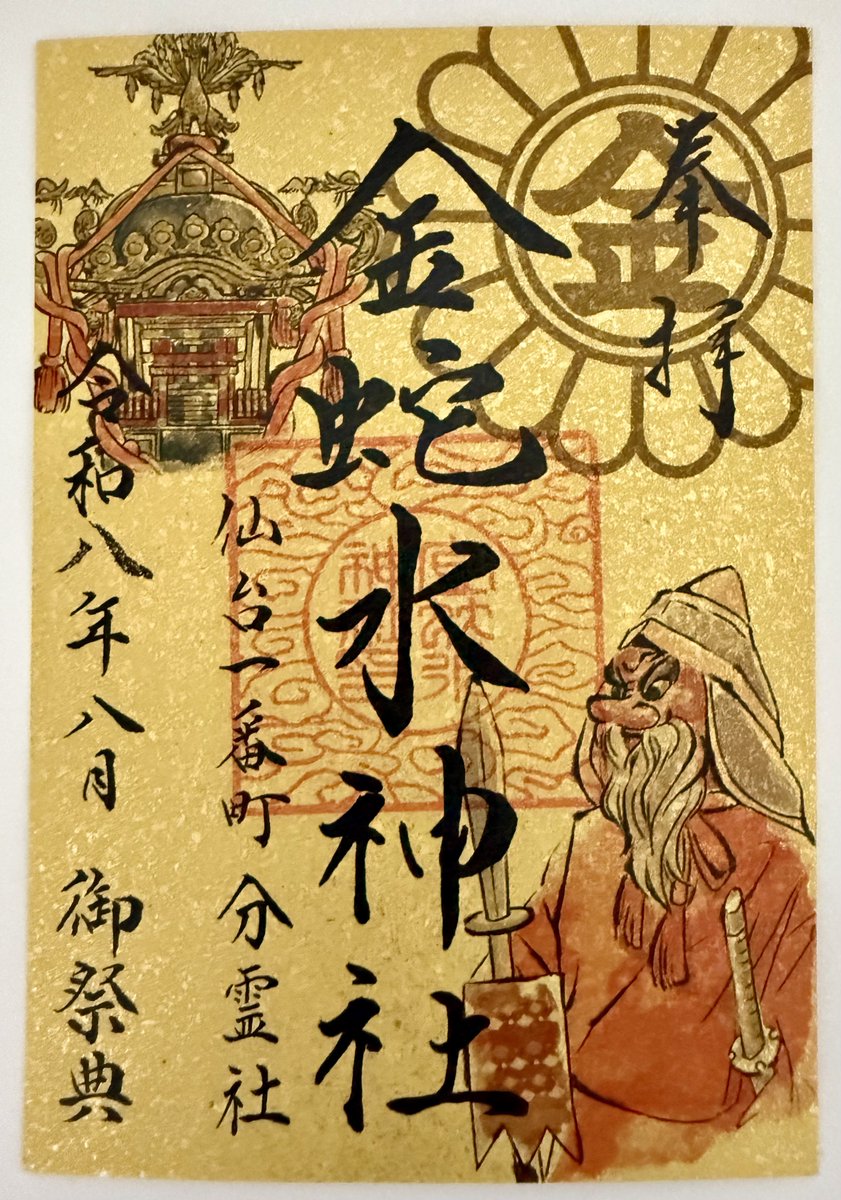 奉拝
金
金蛇水神社
仙台一番町 分霊社
令和八年八月 御祭典